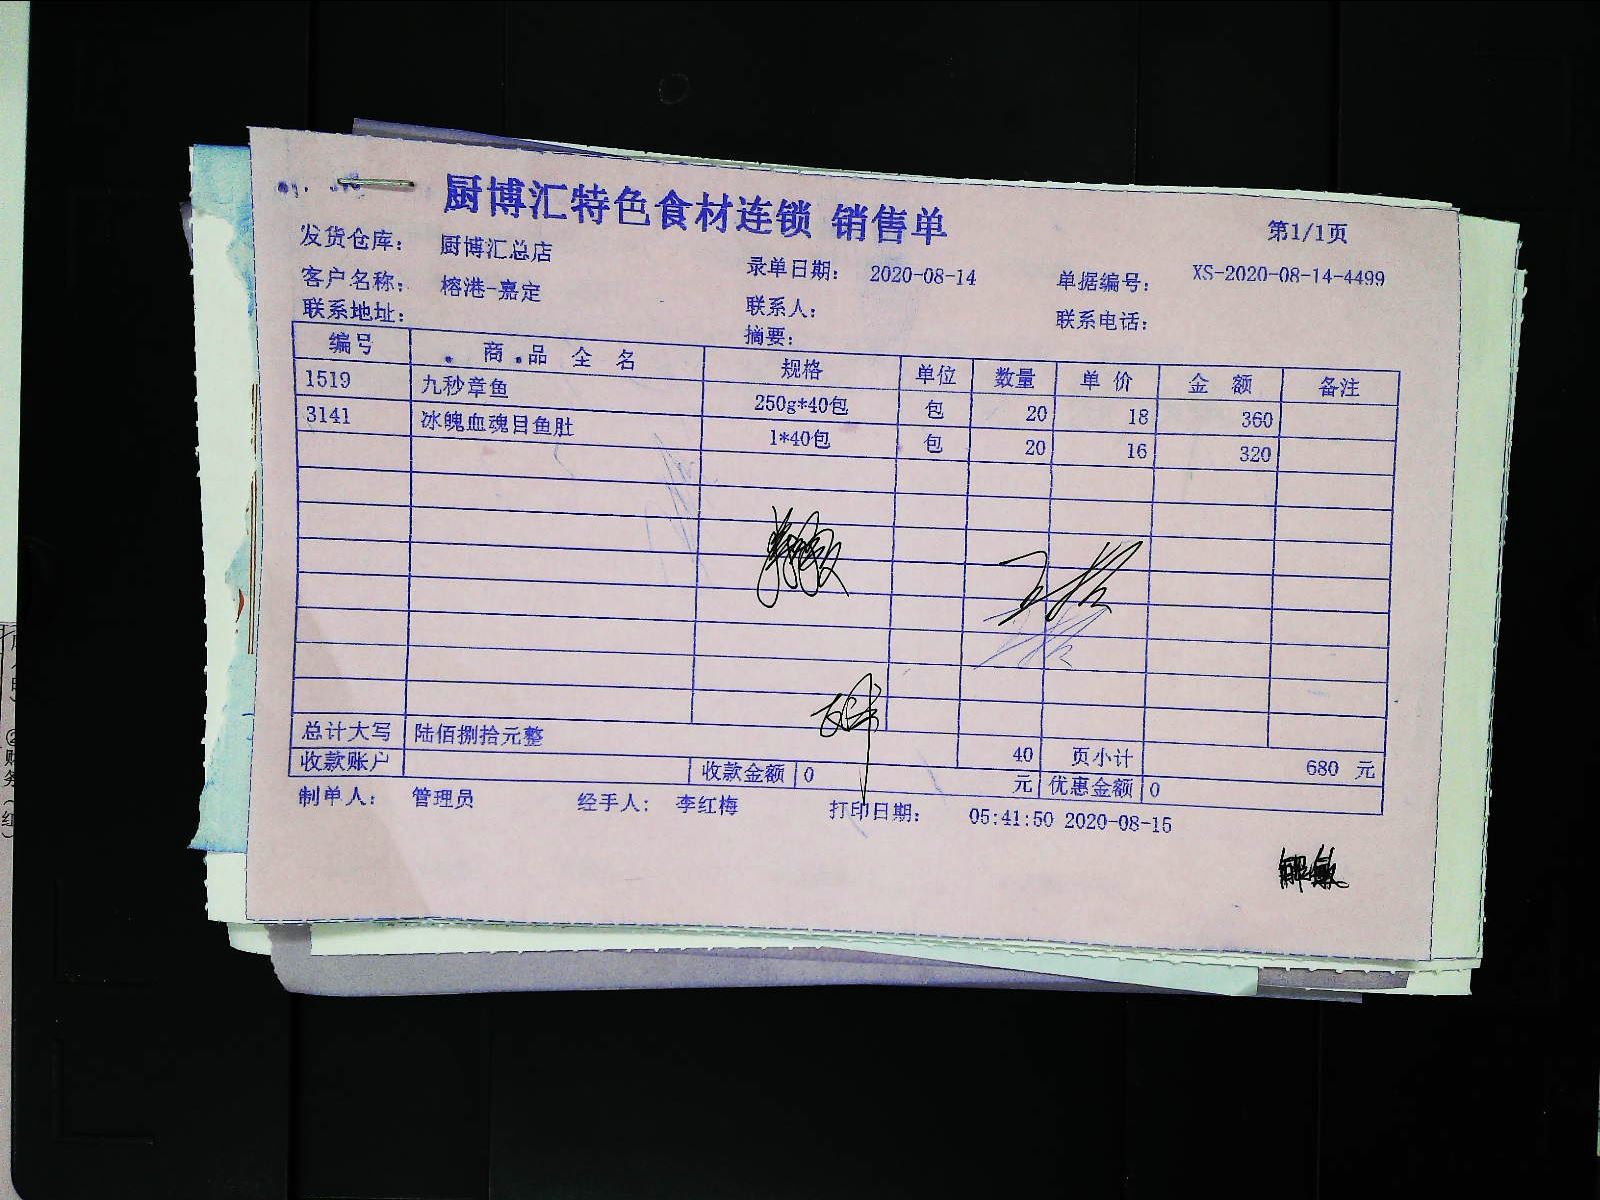 厨博汇特色食材连锁 销售单
第1/1页
发货仓库： 厨博汇总店
录单日期： 2020-08-14
单据编号： XS-2020-08-14-4499
客户名称： 榕港-嘉定
联系人：
联系电话：
联系地址：
摘要：
编号 商 品 全 名 规格 单位 数量 单 价 金 额 备注
1519 九秒章鱼 250g*40包 包 20 18 360
3141 冰魄血魂目鱼肚 1*40包 包 20 16 320
总计大写 陆佰捌拾元整 40 页小计 680 元
收款账户 收款金额 0 元 优惠金额 0
制单人： 管理员 经手人： 李红梅 打印日期： 05:41:50 2020-08-15